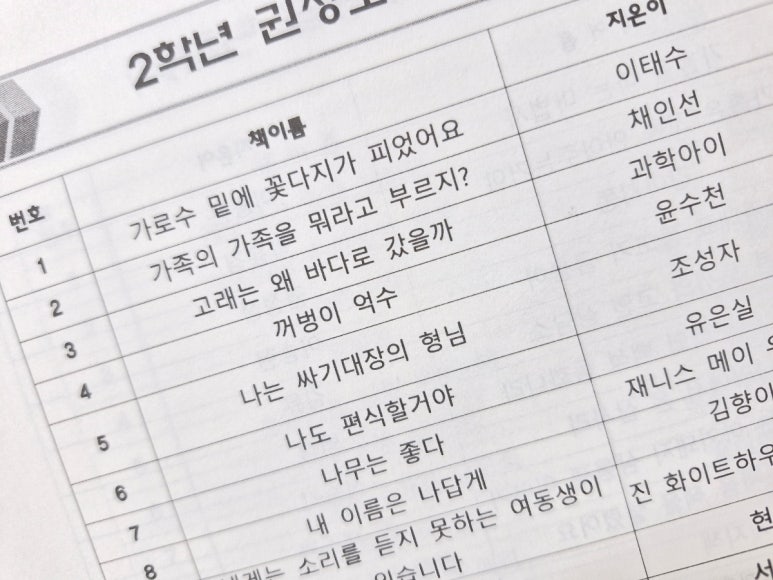 2학년 권장도
번호 책이름 지은이
1 가로수 밑에 꽃다지가 피었어요 이태수
2 가족의 가족을 뭐라고 부르지? 채인선
3 고래는 왜 바다로 갔을까 과학아이
4 꺼벙이 억수 윤수천
5 나는 싸기대장의 형님 조성자
6 나도 편식할거야 유은실
7 나무는 좋다 재니스 메이
8 내 이름은 나답게 김향이
소리를 듣지 못하는 여동생이 진 화이트하우
있습니다
현